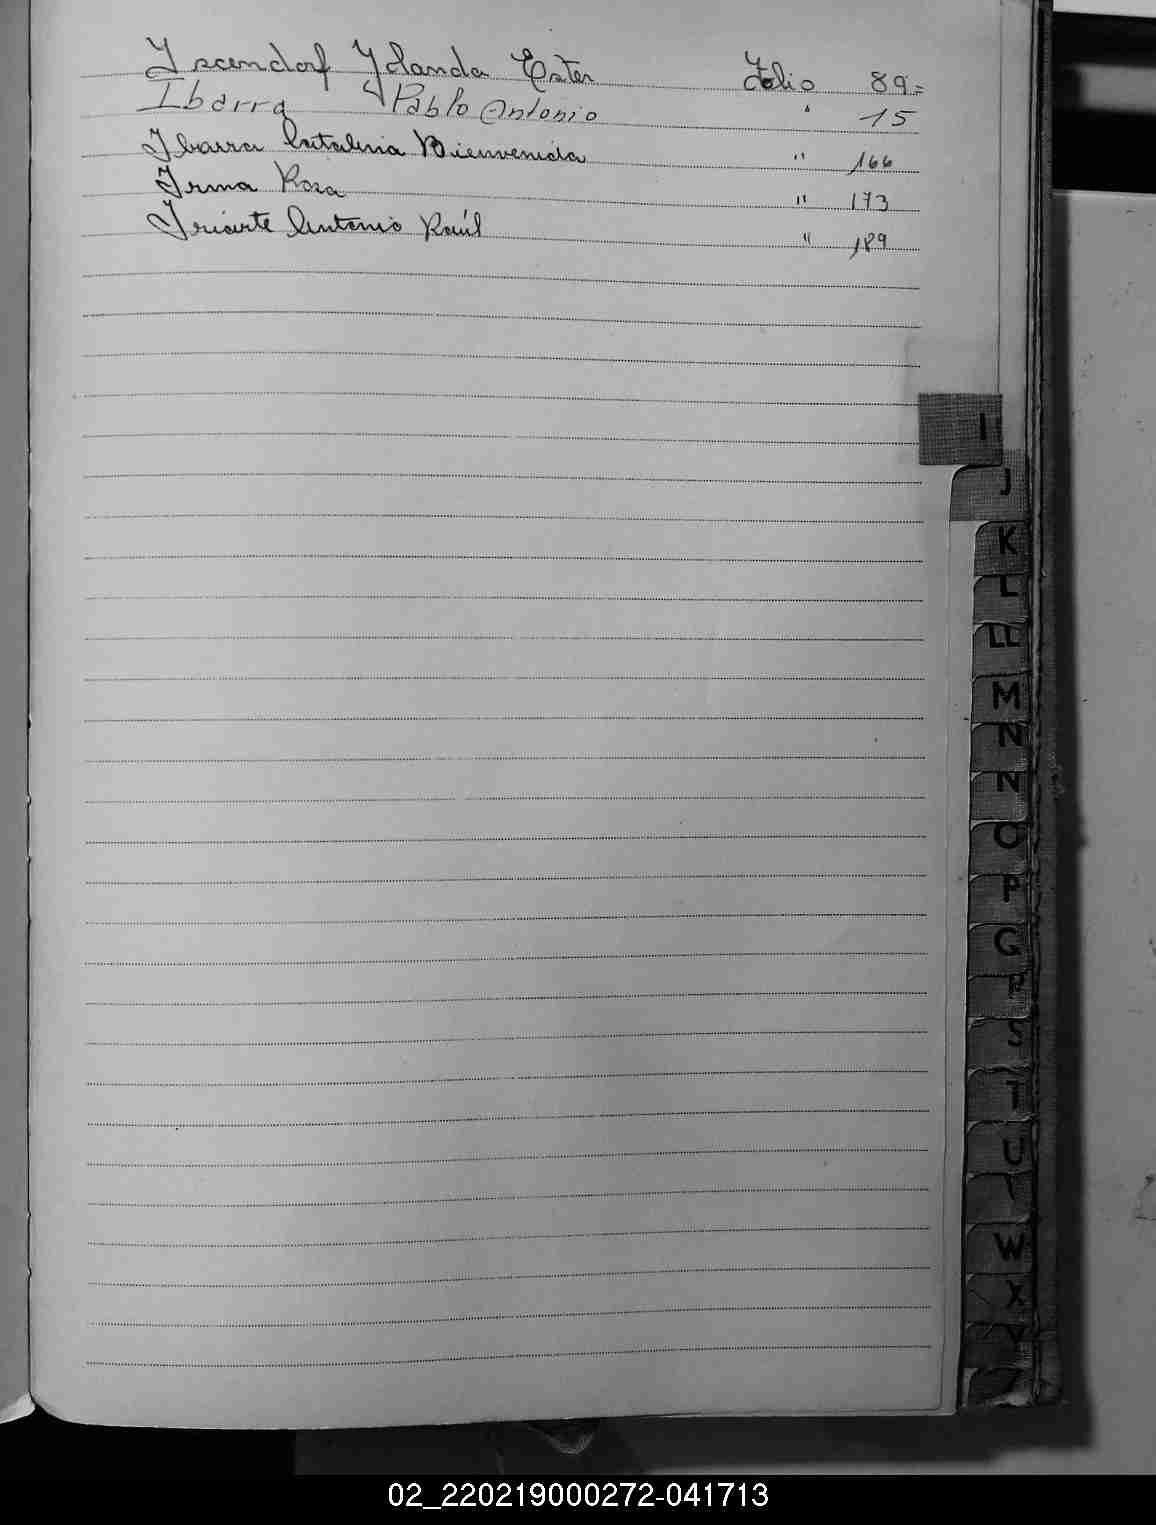 Iscendorf Yolanda Ester Folio 89=
Ibarra Pablo Antonio " 15
Ibarra Catalina Bienvenida " 166
Irma Rosa " 173
Iriarte Antonio Raúl " 189
I
J
K
L
LL
M
N
N
O
P
Q
R
S
T
U
V
W
X
Y
02_220219000272-041713